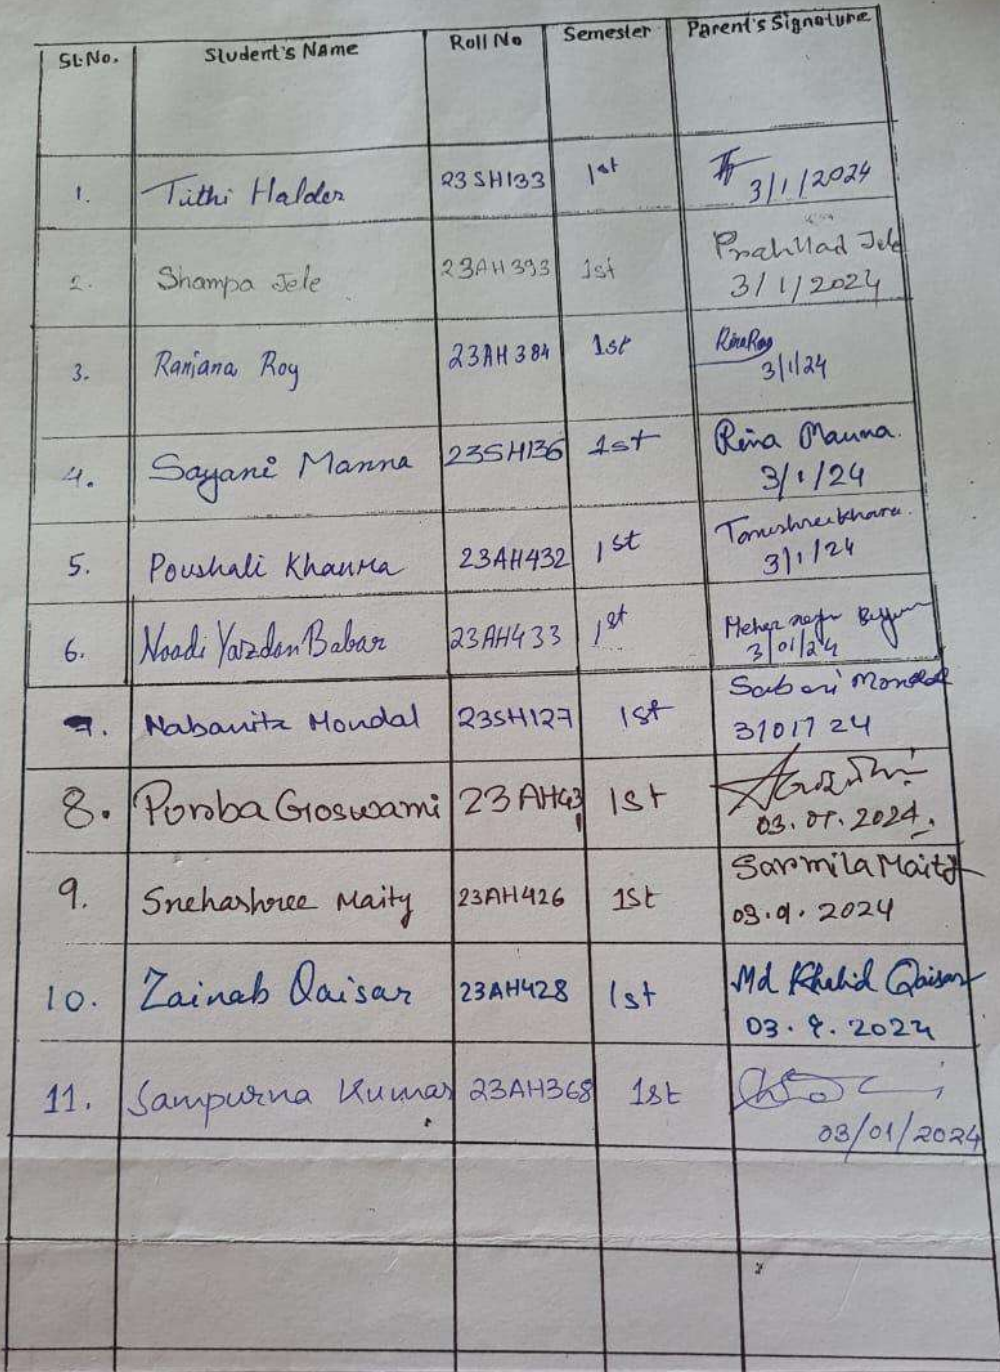 Sl. No. Student's Name Roll No Semester Parent's Signature
1. Tithi Halder 23SH133 1st
3/1/2024
2. Shampa Jele 23AH393 1st Prahllad Jele
3/1/2024
3. Ranjana Roy 23AH384 1st Rina Roy
3/1/24
4. Sayani Manna 23SH136 1st Rina Manna.
3/1/24
5. Poushali Khanra 23AH432 1st Tanushree Khanra.
3/1/24
6. Noadi Yazdan Babar 23AH433 1st
3/01/24
7. Nabanita Mondal 23SH127 1st Sabari Mondal
31017 24
8. Poroba Goswami 23AH43 1st
1
03.01.2024.
9. Snehashree Maity 23AH426 1st Sarmila Maity
03.01.2024
10. Zainab Qaisar 23AH428 1st Md Khalid Qaisar
03.9.2024
11. Sampurna Kumar 23AH368 1st
03/01/2024